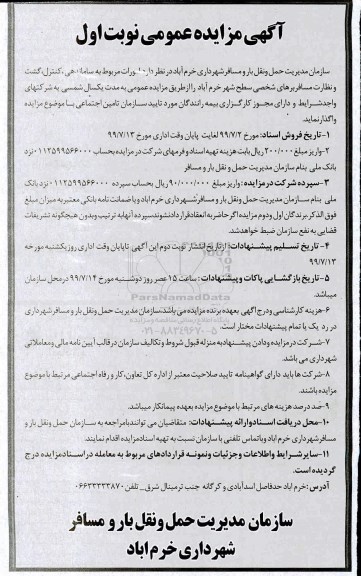 آگهی مزایده عمومی نوبت اول
سازمان مدیریت حمل ونقل بار و مسافر شهرداری خرم آباد در نظر دارد امورات مربوط به ساماندهی، کنترل، گشت
و نظارت مسافربرهای شخصی سطح شهر خرم آباد را از طریق مزایده عمومی به مدت یکسال شمسی به شرکتهای
واجدشرایط و دارای مجوز کارگزاری بیمه رانندگان مورد تایید سازمان تامین اجتماعی با موضوع مزایده
واگذار نماید.
۱- تاریخ فروش اسناد: مورخ ۹۹/۷/۲ لغایت پایان وقت اداری مورخ ۹۹/۷/۱۳
۲-واریز مبلغ ۲۰۰/۰۰۰ ریال بابت هزینه تهیه اسناد و فرمهای شرکت در مزایده بحساب ۰۱۱۲۵۹۹۵۶۶۰۰۰ نزد
بانک ملی بنام سازمان مدیریت حمل ونقل بار و مسافر
۳- سپرده شرکت در مزایده: واریز مبلغ ۹۰/۰۰۰/۰۰۰ ریال بحساب سپرده ۰۱۱۲۵۹۹۵۶۶۰۰۰ نزد بانک
ملی بنام سازمان مدیریت حمل ونقل بار و مسافر شهرداری خرم آباد و یا ضمانت نامه بانکی معتبر به میزان مبلغ
فوق الذکر. برندگان اول ودوم مزایده اگر حاضر به انعقاد قرارداد نشوند سپرده آنها به ترتیب وبدون هیچگونه تشریفات
قضایی به نفع سازمان ضبط خواهد شد.
۴- تاریخ تسلیم پیشنهادات: از تاریخ انتشار نوبت دوم این آگهی تا پایان وقت اداری روز یکشنبه مورخه
۹۹/۷/۱۳
۵- تاریخ بازگشایی پاکات و پیشنهادات: ساعت ۱۵ عصر روز دوشنبه مورخ ۹۹/۷/۱۴ در محل سازمان
میباشد.
۶-هزینه کارشناسی و درج آگهی بعهده برنده مزایده می باشد، سازمان مدیریت حمل ونقل بار و مسافر شهرداری
در رد یک یا تمام پیشنهادات مختار است.
۷-شرکت در مزایده ودادن پیشنهاد به منزله قبول شروط و تکالیف سازمان در قالب آیین نامه مالی ومعاملاتی
شهرداری می باشد.
۸-شرکت ها باید دارای گواهینامه تایید صلاحیت معتبر از اداره کل تعاون، کار و رفاه اجتماعی مرتبط با موضوع
مزایده باشند.
۹-صد درصد هزینه های مرتبط با موضوع مزایده بعهده پیمانکار میباشد.
۱۰-محل دریافت اسناد وارائه پیشنهادات: متقاضیان می توانند با مراجعه به سازمان حمل ونقل بار و
مسافر شهرداری خرم آباد ویا تماس تلفنی با سازمان نسبت به تهیه اسناد مزایده اقدام نمایند.
۱۱-سایر شرایط واطلاعات وجزئیات ونمونه قراردادهای مربوط به معامله در اسناد مزایده درج
گردیده است.
آدرس: خرم آباد حدفاصل اسدآبادی و کرگانه جنب ترمینال شرق_ تلفن ۰۶۶۳۳۳۳۳۸۷۰
سازمان مدیریت حمل و نقل بار و مسافر
شهرداری خرم اباد
ParsNamadData
۰۲۱-۸۸۳۴۹۶۷۰-۵